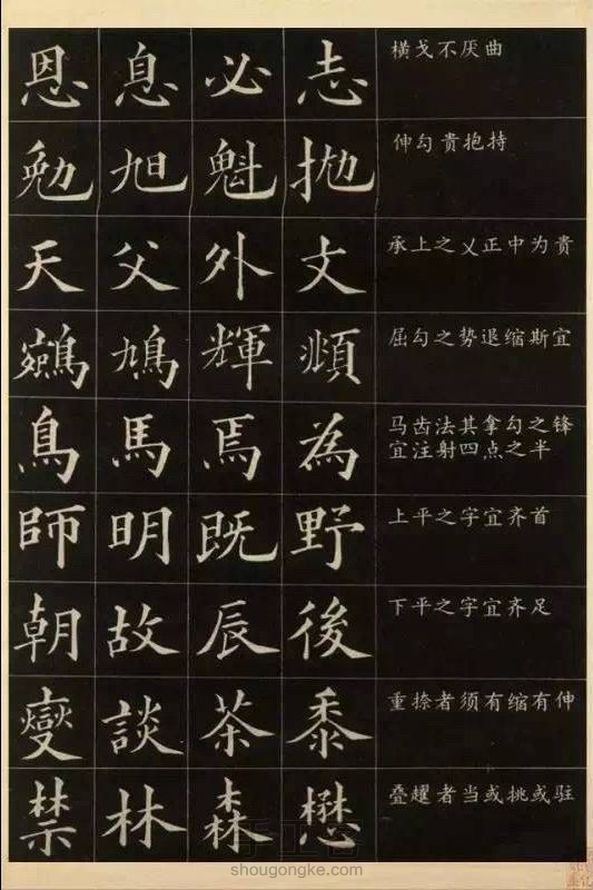 恩 息 必 志 横戈不厌曲
勉 旭 魁 抛 伸勾贵抱持
天 父 外 丈 承上之乂正中为贵
鳩 輝 頫 屈勾之势退缩斯宜
鳥 馬 焉 為 马齿法其拿勾之锋
宜注射四点之半
師 明 既 野 上平之字宜齐首
朝 故 辰 後 下平之字宜齐足
燮 談 茶 黍 重捺者须有缩有伸
禁 林 森 懋 叠趯者当或挑或驻
手工客
shougongke.com